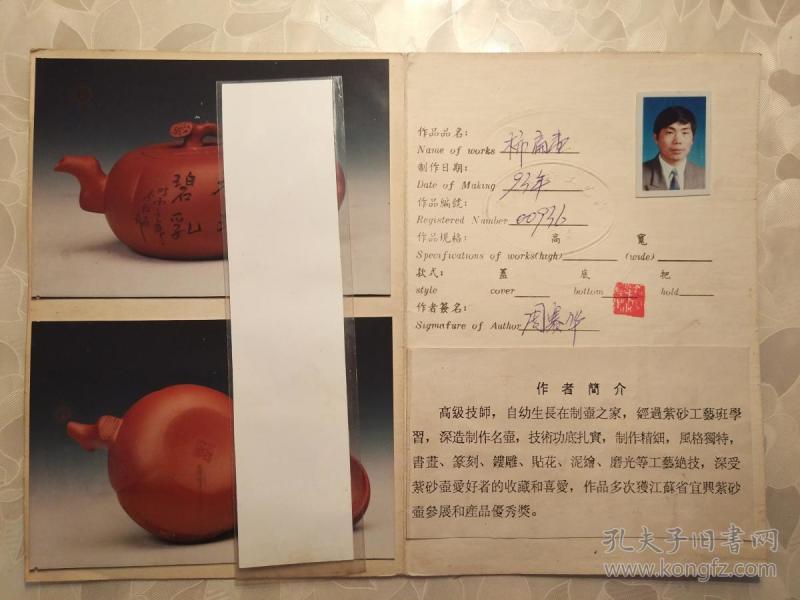 碧
乳
作品品名：
Name of works 柿扁壶
制作日期：
Date of Making 93年
作品編號：
Registered Number 00936
作品规格： 高 寬
Specifications of works(high) (wide)
款式： 蓋 底 把
style cover bottom hold
作者簽名：
Signature of Author 周寨华
作者簡介
高級技師，自幼生長在制壺之家，經過紫砂工藝班學
習，深造制作名壺，技術功底扎實，制作精细，風格獨特，
書畫、篆刻、鏤雕、貼花、泥繪、磨光等工藝絶技，深受
紫砂壺愛好者的收藏和喜愛，作品多次獲江蘇省宜興紫砂
壺參展和産品優秀獎。
孔夫子旧书网
www.kongfz.com